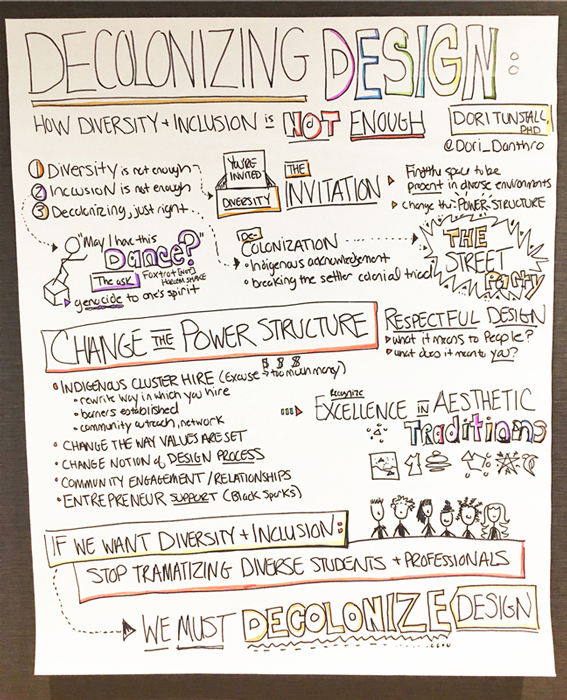 DECOLONIZING DESIGN:
HOW DIVERSITY + INCLUSION is NOT ENOUGH
DORI TUNSTALL, PHD
@Dori_Danthro
1 Diversity is not enough
2 Inclusion is not enough
3 Decolonizing, just right
YOU'RE INVITED
DIVERSITY
THE INVITATION
Finding the space to be
present in diverse environments
change the POWER STRUCTURE
"May I have this
Dance?"
The ask
Foxtrot [NOT]
HARLEM SHAKE
genocide to one's spirit
DE-
COLONIZATION
Indigenous acknowledgement
breaking the settler colonial triad
THE
STREET
PARTY
CHANGE THE POWER STRUCTURE
RESPECTFUL DESIGN
what it means to People?
what does it mean to you?
$ $ $
INDIGENOUS CLUSTER HIRE (Excuse → too much money)
rewrite way in which you hire
barriers established
community outreach, network
CHANGE THE WAY VALUES ARE SET
CHANGE NOTION of DESIGN PROCESS
COMMUNITY ENGAGEMENT / RELATIONSHIPS
ENTREPRENEUR SUPPORT (Black Sparks)
Recognize
EXCELLENCE IN AESTHETIC
Traditions
IF WE WANT DIVERSITY + INCLUSION:
STOP TRAMATIZING DIVERSE STUDENTS + PROFESSIONALS
WE MUST DECOLONIZE DESIGN